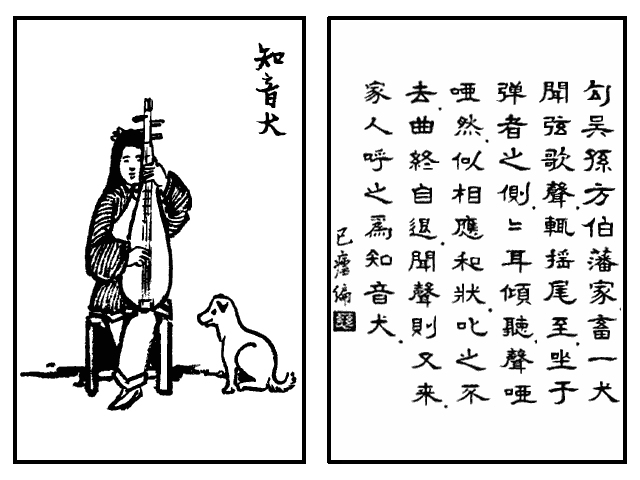 知音犬
勾吴孫方伯藩家畜一犬
聞弦歌聲.輒摇尾至.坐于
弹者之側.〻耳傾聽.聲哑
哑然.似相應和狀.叱之不
去.曲終自退.聞聲則又来.
家人呼之為知音犬.
編